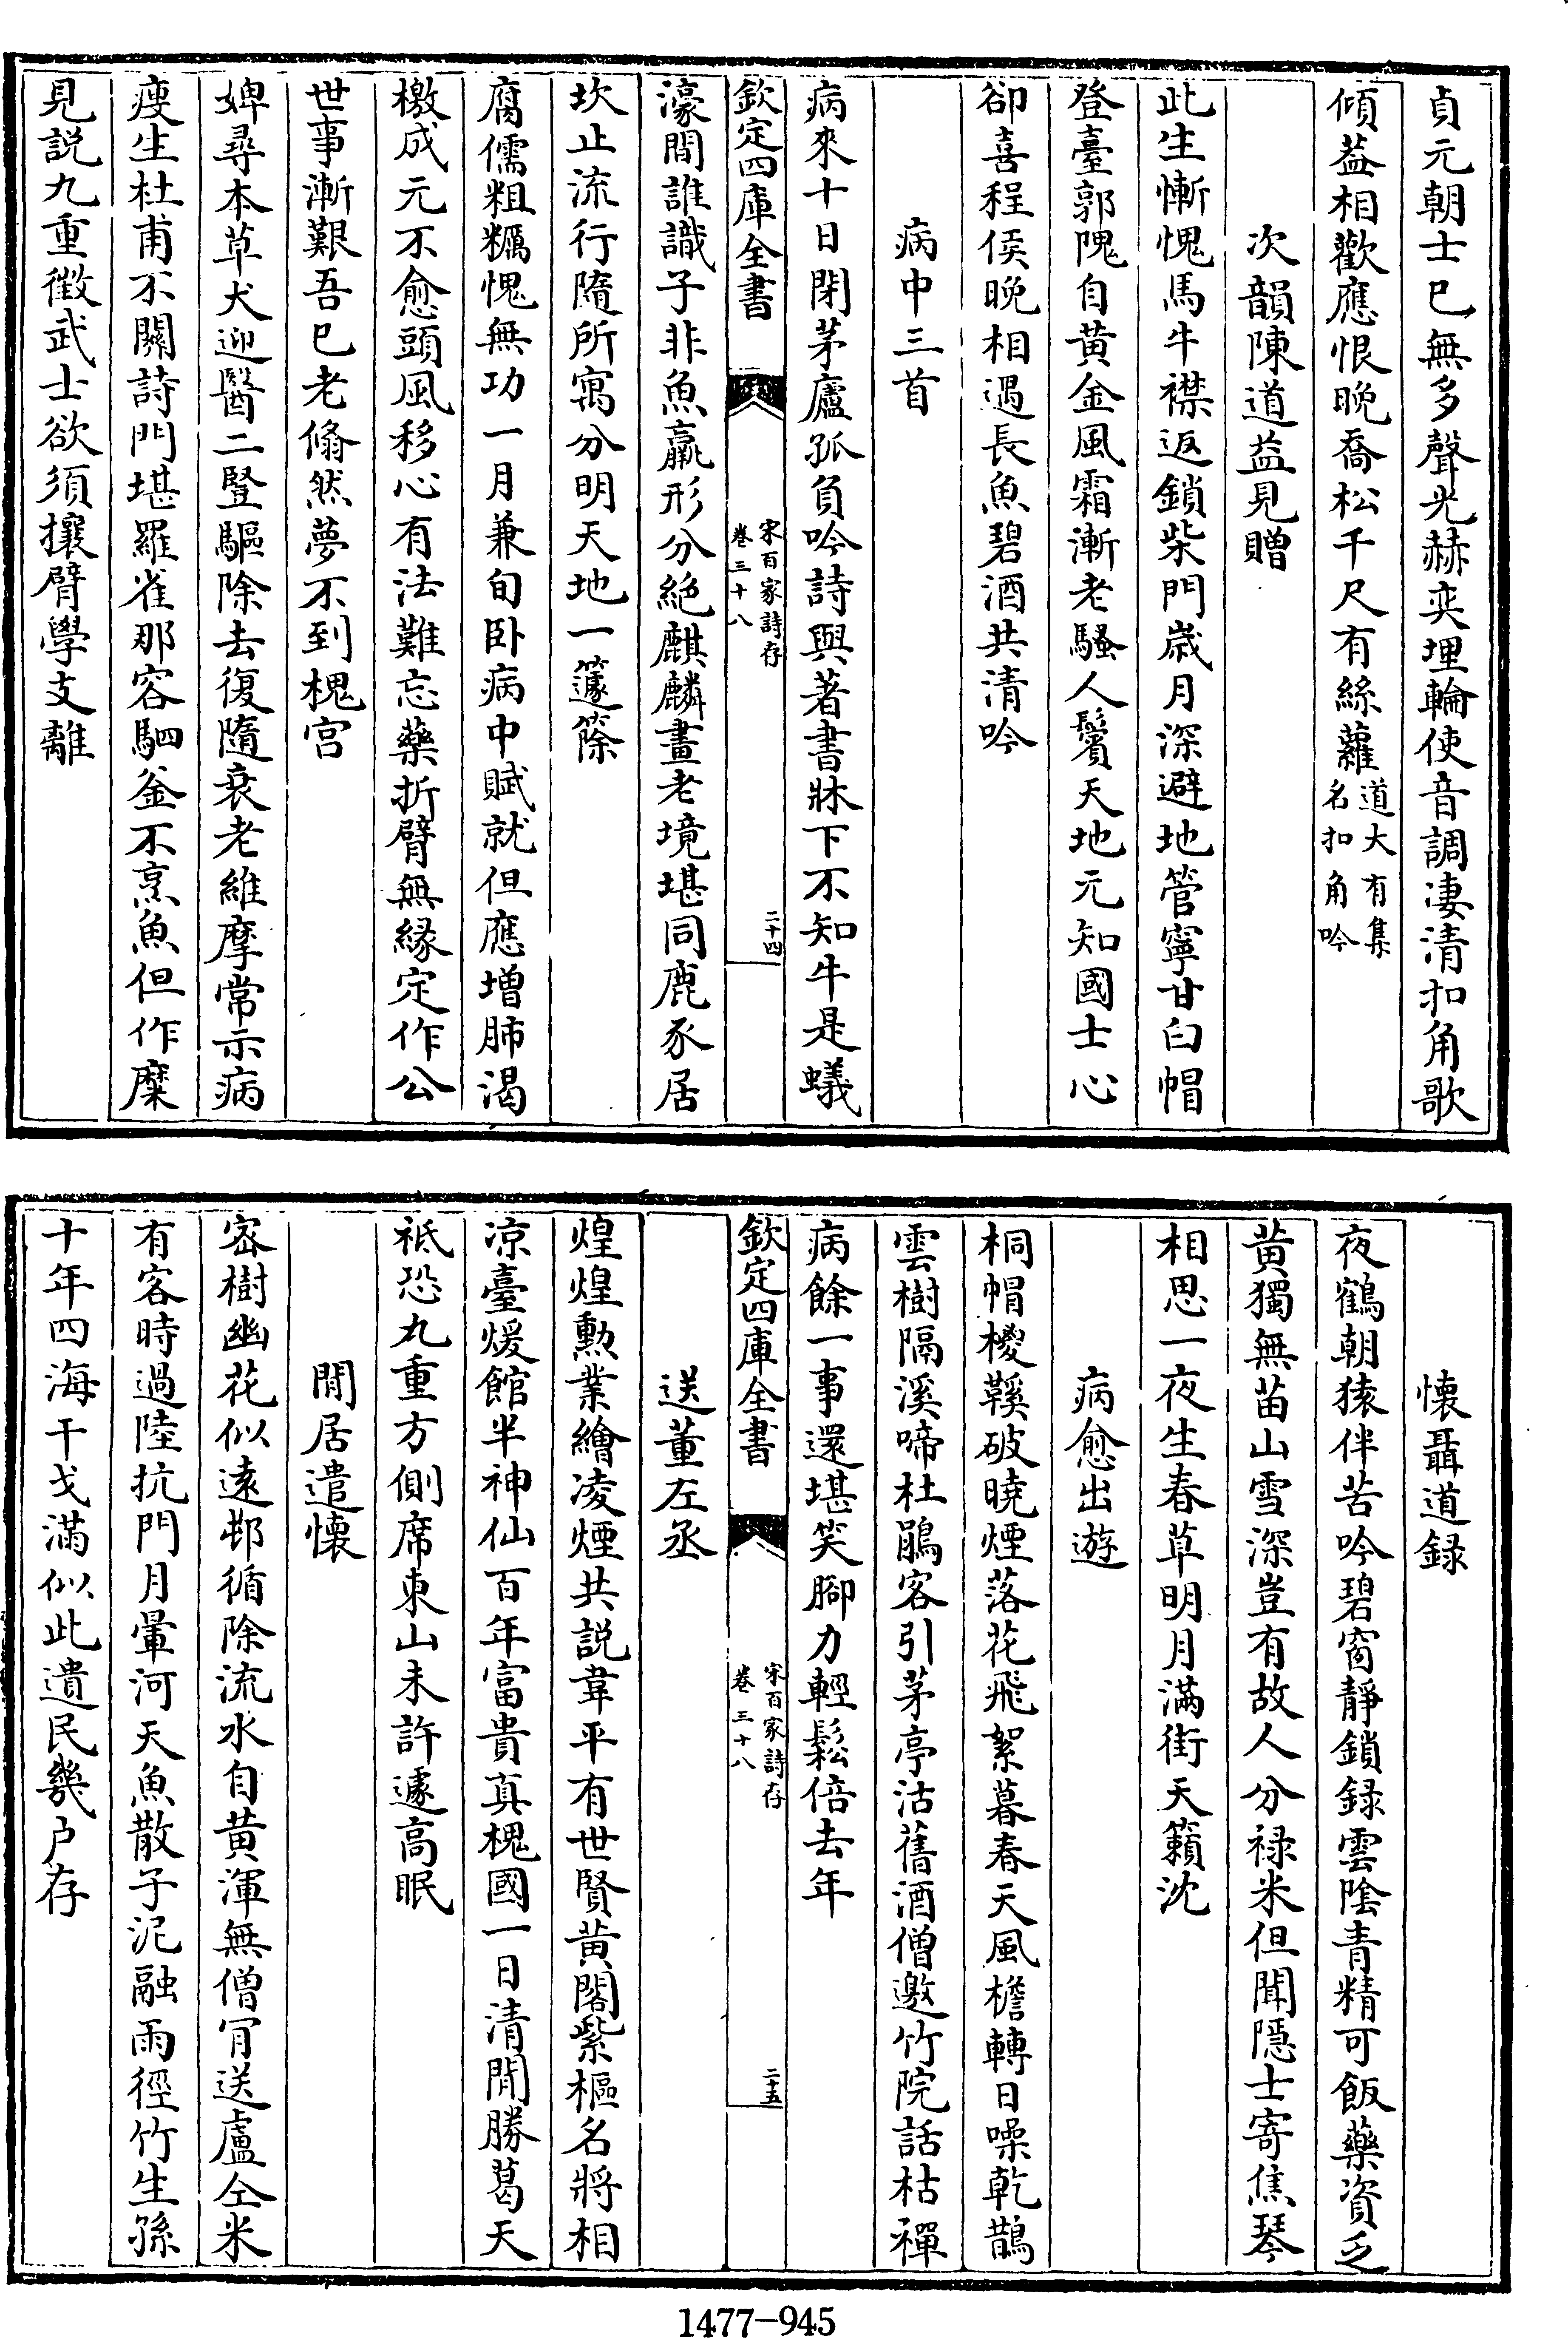 貞元朝士已無多聲光赫奕埋輪使音調淒清扣角歌
傾葢相歡應恨晚喬松千尺有絲蘿道大有集名扣角吟
次韻陳道益見贈
此生慚愧馬牛襟返鎖柴門歳月深避地管寧甘白帽
登臺郭隗自黄金風霜漸老騷人鬢天地元知國士心
卻喜程侯晚相遇長魚碧酒共清吟
病中三首
病來十日閉茅廬孤負吟詩與著書牀下不知牛是蟻
欽定四庫全書
宋百家詩存
卷三十八
二十四
濠間誰識子非魚羸形分絶麒麟畫老境堪同鹿豕居
坎止流行隨所寓分明天地一籧篨
腐儒粗糲愧無功一月兼旬卧病中賦就但應增肺渴
檄成元不愈頭風移心有法難忘藥折臂無縁定作公
世事漸艱吾已老翛然夢不到槐宫
婢尋本草犬迎醫二豎驅除去復隨衰老維摩常示病
瘦生杜甫不關詩門堪羅雀那容駟釜不烹魚但作糜
見説九重徵武士欲須攘臂學支離
懐聶道録
夜鶴朝猿伴苦吟碧窗靜鎖録雲陰青精可飯藥資乏
黄獨無苗山雪深豈有故人分禄米但聞隠士寄焦琴
相思一夜生春草明月滿街天籟沈
病愈出遊
桐帽椶鞵破曉煙落花飛絮暮春天風檐轉日噪乾鵲
雲樹隔溪啼杜鵑客引茅亭沽舊酒僧邀竹院話枯禪
病餘一事還堪笑腳力輕鬆倍去年
欽定四庫全書
宋百家詩存
卷三十八
二十五
送董左丞
煌煌勲業繪凌煙共説韋平有世賢黄閣紫樞名將相
凉臺煖館半神仙百年富貴真槐國一日清閒勝葛天
祗恐九重方側席東山未許遽高眠
閒居遣懐
宻樹幽花似逺邨循除流水自黄渾無僧肎送盧仝米
有客時過陸抗門月暈河天魚散子泥融雨徑竹生孫
十年四海干戈滿似此遺民幾户存
1477-945